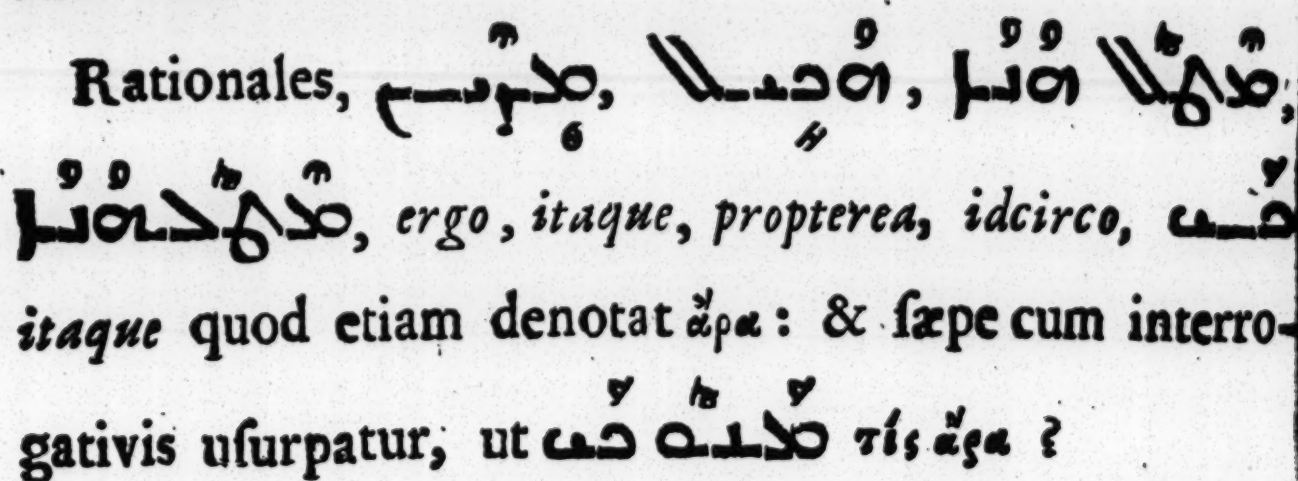 Rationales, ܡܶܕܶܝܢ, ܗܳܟܺܝܠ, ܡܶܛܽܠ ܗܳܢܳܐ;
ܡܶܛܽܠܗܳܢܳܐ, ergo, itaque, propterea, idcirco, ܟܰܝ
itaque quod etiam denotat ἄρα: & ſæpe cum interro-
gativis uſurpatur, ut ܡܰܢܽܘ ܟܰܝ τίς ἄρα ?